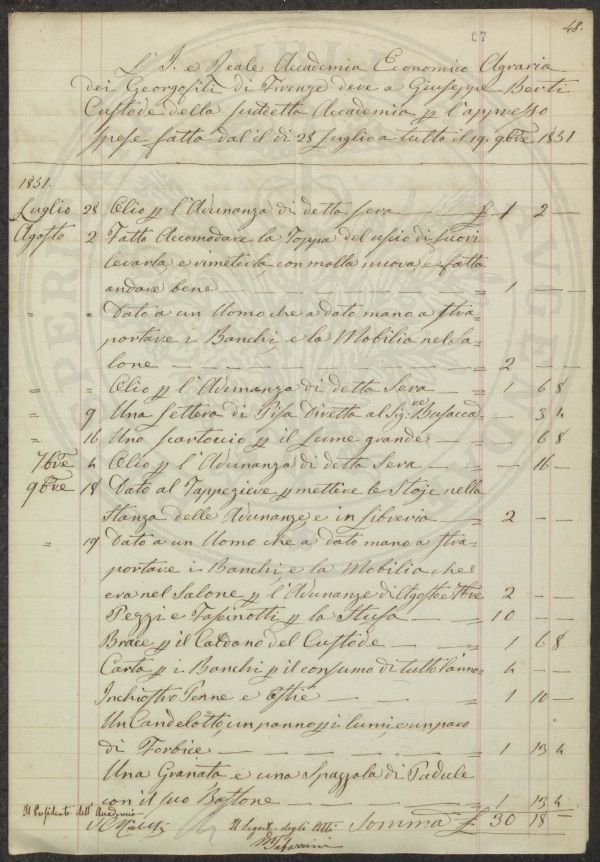 67
48.
L'I. e Reale Accademia Economico Agraria
dei Georgofili di Firenze deve a Giuseppe Berti
Custode della suddetta Accademia p l'appresso
spese fatta dal il di 28 luglio a tutto il 19. 9bre 1831
1831.
Luglio 28 Olio p l'Adunanza di detta sera — £ 1 2 —
Agosto 2 Fatto Accomodare la Toppa del uscio di fuori
levarla, e rimeterla con molla nuova e fatta
andare bene — = 1 — —
" " Dato a un Uomo che a dato mano a stra=
portare i Banchi, e la Mobilia nel Sa=
lone — = 2 — —
" " Olio p l'Adunanza di detta Sera — = 1 6 8
" 9 Una lettera di Pisa Diretta al Sigre — 3 4
" 16 Uno scartoccio p il Lume grande — — 6 8
7bre 4 Olio p l'Adunanza di detta Sera — — 16 —
9bre 18 Dato al Tappeziere p mettere le Stoje nella
Stanza delle Adunanze, e in libreria — = 2 — —
" 19 Dato a un Uomo che a dato mano a stra=
portare i Banchi, e la Mobilia che
era nel Salone p l'Adunanze di Agosto e 7bre 2 — —
Pezzi e Fascinotti p la Stufa — = 10 — —
Brace p il Caldano del Custode — 1 6 8
Carta p i Banchi p il consumo di tutto l'anno = 4 — —
Inchiostro Penne e Ostie — = 1 10 —
Un Candelotto, un panno p i lumi, e un paro
di Forbice — = 1 13 4
Una Granata e una Spazzola di Padule
con il suo Bastone — = 1 13 4
Somma £ 30 18 —
Il Presidente dell' Accademia
Il Segret. degli Atti